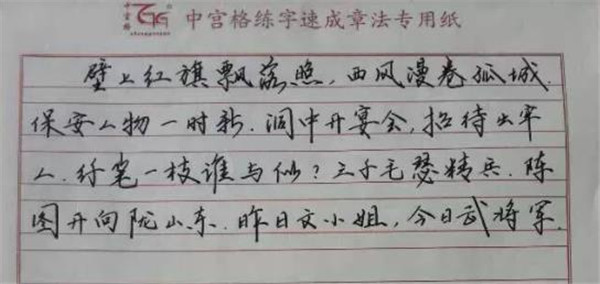 中宫格练字速成章法专用纸
壁上红旗飘落照,西风漫卷孤城.
保安人物一时新.洞中开宴会,招待出牢
人.纤笔一枝谁与似?三千毛瑟精兵.阵
图开向陇山东.昨日文小姐,今日武将军.